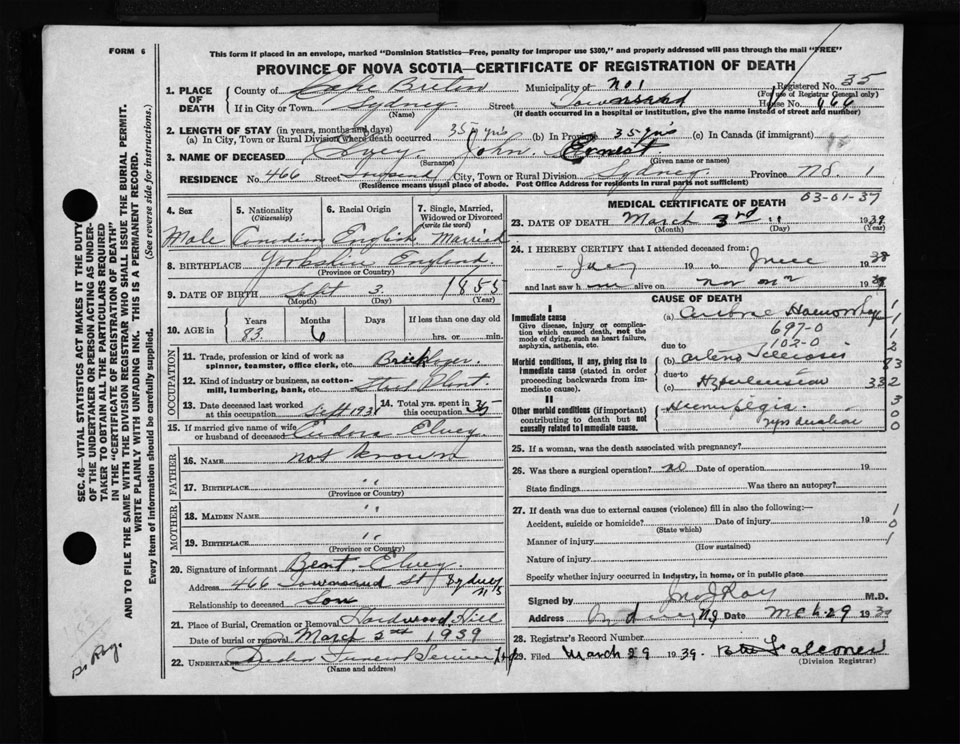 FORM 6
This form if placed in an envelope, marked "Dominion Statistics—Free, penalty for improper use $300," and properly addressed will pass through the mail "FREE"
PROVINCE OF NOVA SCOTIA—CERTIFICATE OF REGISTRATION OF DEATH
1. PLACE OF DEATH
County of Cape Breton Municipality of No 1 Registered No. 35
(For use of Registrar General only)
If in City or Town Sydney Street Townsend House No. 466
(Name) (If death occurred in a hospital or institution, give the name instead of street and number)
2. LENGTH OF STAY (in years, months and days)
(a) In City, Town or Rural Division where death occurred 35 yrs (b) In Province 35 yrs (c) In Canada (if immigrant)
3. NAME OF DECEASED John Ernest
(Surname) (Given name or names)
RESIDENCE No. 466 Street Townsend City, Town or Rural Division Sydney Province N.S. 1
(Residence means usual place of abode. Post Office Address for residents in rural parts not sufficient)
4. Sex
Male
5. Nationality (Citizenship)
Canadian
6. Racial Origin
English
7. Single, Married, Widowed or Divorced (write the word)
Married
8. BIRTHPLACE Yorkshire England
(Province or Country)
9. DATE OF BIRTH Sept 3 1855
(Month) (Day) (Year)
10. AGE in Years Months Days If less than one day old
83 6 hrs. or min.
OCCUPATION
11. Trade, profession or kind of work as spinner, teamster, office clerk, etc. Bricklayer
12. Kind of industry or business, as cotton-mill, lumbering, bank, etc. Steel Plant
13. Date deceased last worked at this occupation Sept 193
14. Total yrs. spent in this occupation 35
15. If married give name of wife or husband of deceased Elvey
FATHER
16. NAME not known
17. BIRTHPLACE "
(Province or Country)
MOTHER
18. MAIDEN NAME "
19. BIRTHPLACE "
(Province or Country)
20. Signature of informant Bert Elvey
Address 466 Townsend St Sydney N.S.
Relationship to deceased Son
21. Place of Burial, Cremation or Removal Hardwood Hill
Date of burial or removal March 1939
22. UNDERTAKER Funeral Service
(Name and address)
MEDICAL CERTIFICATE OF DEATH 03-01-37
23. DATE OF DEATH March 3rd 1939
(Month) (Day) (Year)
24. I HEREBY CERTIFY that I attended deceased from:
19 to 19
and last saw h alive on 19
CAUSE OF DEATH
I
Immediate cause
Give disease, injury or complication which caused death, not the mode of dying, such as heart failure, asphyxia, asthenia, etc.
(a)
697-0
due to 103-0
Morbid conditions, if any, giving rise to immediate cause (stated in order proceeding backwards from immediate cause).
(b)
due to
(c) Hypertension 332
II
Other morbid conditions (if important) contributing to death but not causally related to immediate cause.
Hemiplegia
25. If a woman, was the death associated with pregnancy?
26. Was there a surgical operation? no Date of operation 19
State findings Was there an autopsy?
27. If death was due to external causes (violence) fill in also the following:—
Accident, suicide or homicide? Date of injury 19
(State which)
Manner of injury
(How sustained)
Nature of injury
Specify whether injury occurred in industry, in home, or in public place
Signed by Roy M.D.
Address Sydney NS Date Mch 29 1939
28. Registrar's Record Number
29. Filed March 29 1939. Falconer
(Division Registrar)
SEC. 46—VITAL STATISTICS ACT MAKES IT THE DUTY
OF THE UNDERTAKER OR PERSON ACTING AS UNDER-
TAKER TO OBTAIN ALL THE PARTICULARS REQUIRED
IN THE "CERTIFICATE OF REGISTRATION OF DEATH"
AND TO FILE THE SAME WITH THE DIVISION REGISTRAR WHO SHALL ISSUE THE BURIAL PERMIT.
WRITE PLAINLY WITH UNFADING INK. THIS IS A PERMANENT RECORD.
Every item of information should be carefully supplied. (See reverse side for instructions.)
Dr Roy.